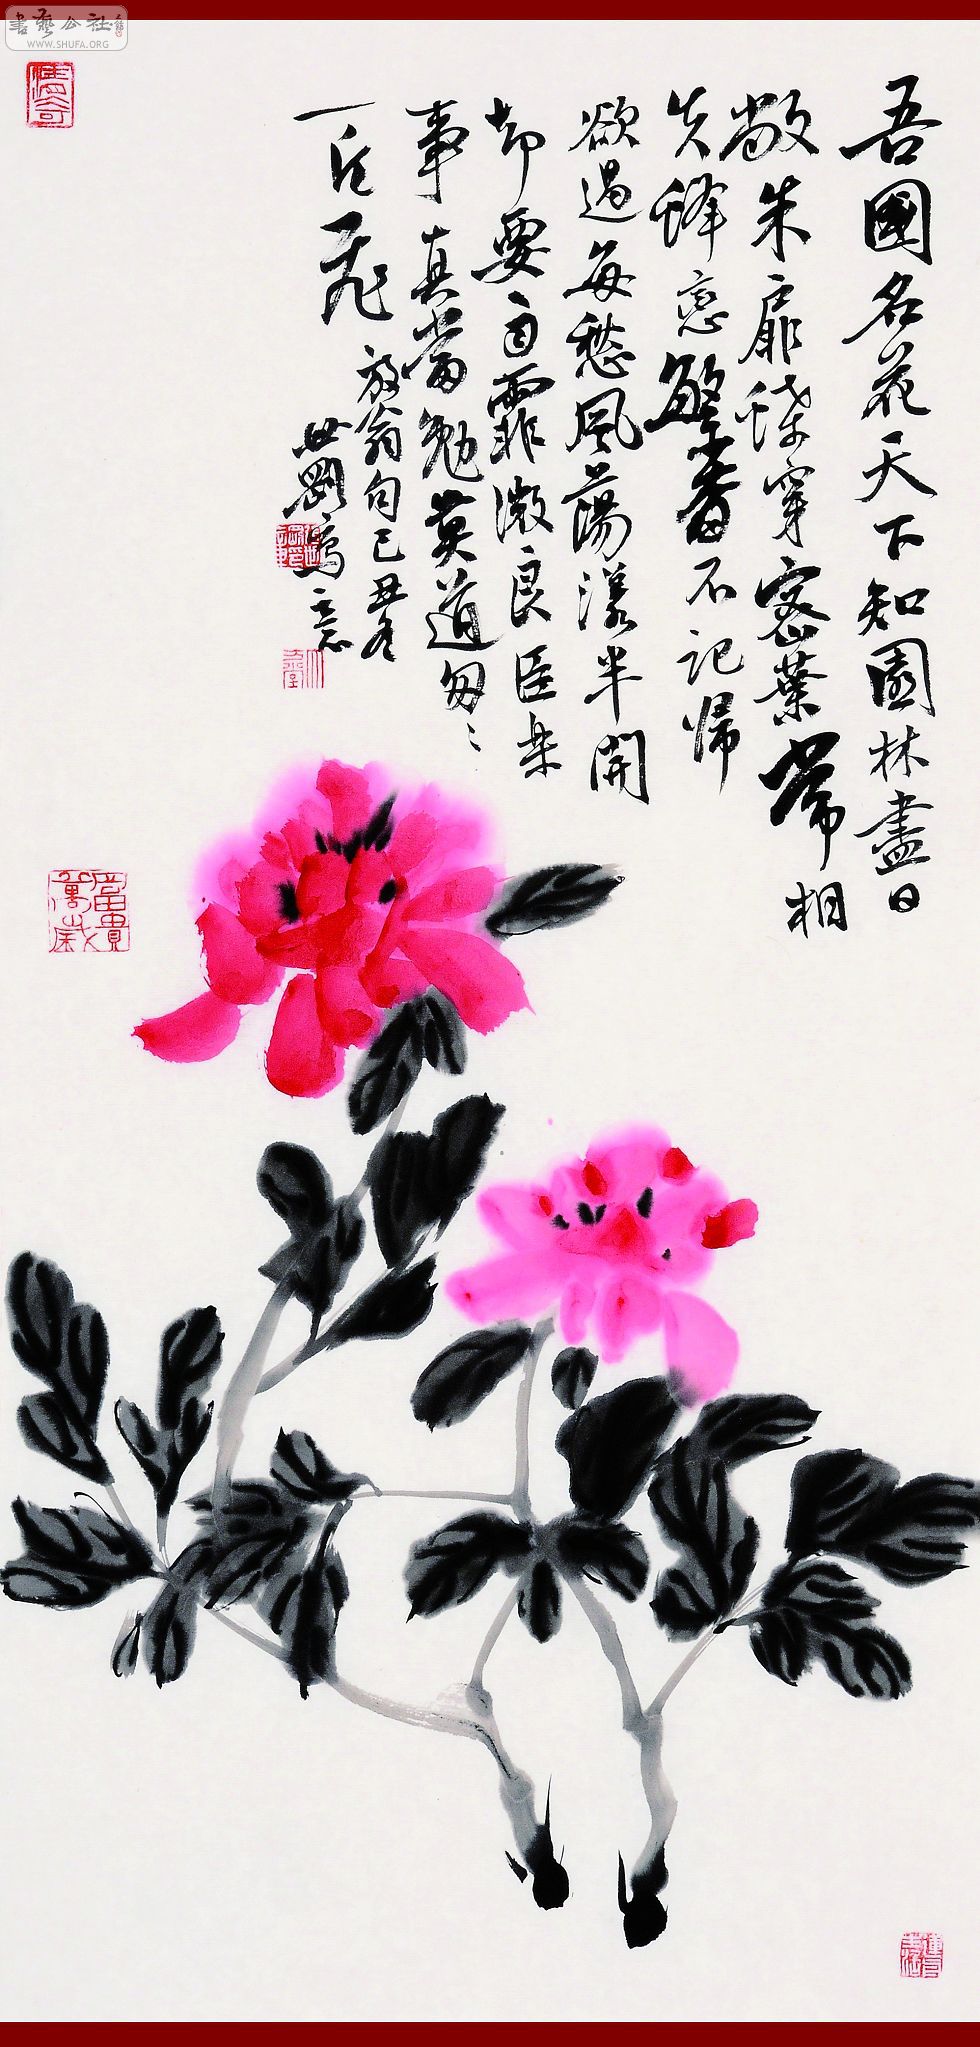 書藝公社
WWW.SHUFA.ORG
吾國名花天下知園林盡日
敞朱扉蝶穿密葉常相
失蜂戀繁香不記歸
欲過每愁風蕩漾半開
却要雨霏微良臣樂
事真當勉莫道匆〻
一片飛
放翁句己丑冬
世剛寫意
富貴萬歲